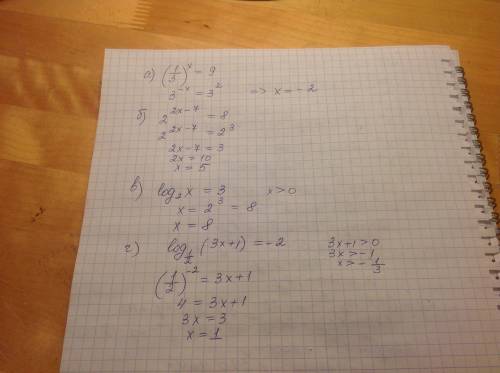 а) (1/3)^x = 9
3^-x = 3^2 => x = -2
б) 2^2x-7 = 8
2^2x-7 = 2^3
2x-7 = 3
2x = 10
x = 5
в) log₂ x = 3 x > 0
x = 2^3 = 8
x = 8
г) log_1/2 (3x+1) = -2 3x+1 > 0
3x > -1
(1/2)^-2 = 3x+1 x > -1/3
4 = 3x+1
3x = 3
x = 1